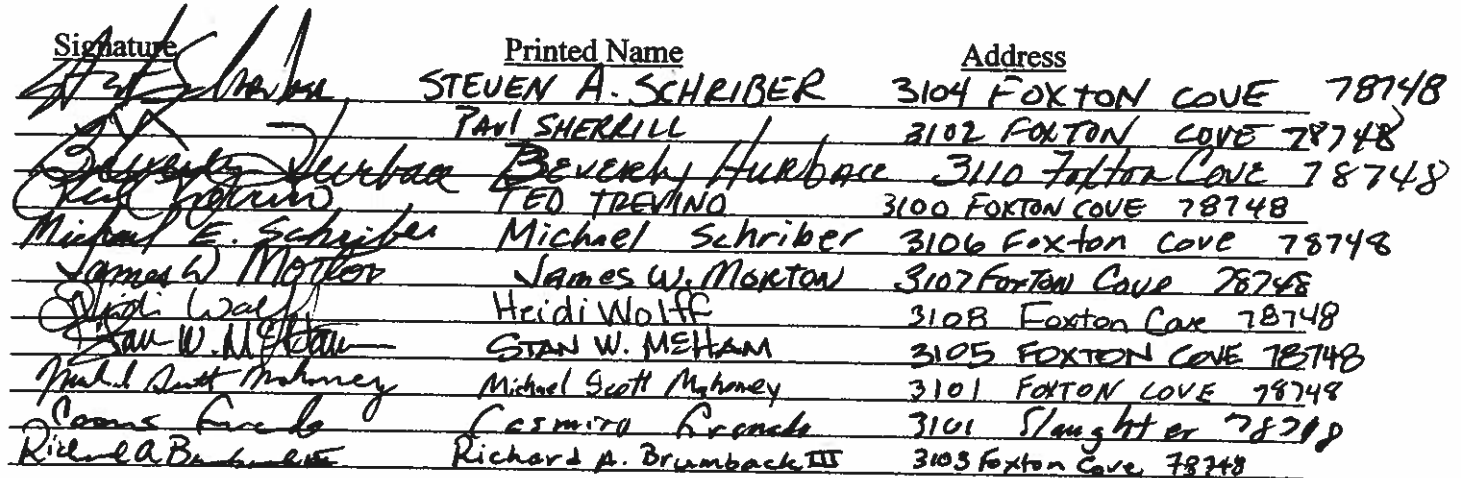 Signature Printed Name Address
STEVEN A. SCHRIBER 3104 FOXTON COVE 78748
PAUL SHERRILL 3102 FOXTON COVE 78748
Beverly Hurbace Beverly Hurbace 3110 Foxton Cove 78748
TED TREVINO 3100 FOXTON COVE 78748
Michael E. Schriber Michael Schriber 3106 Foxton Cove 78748
James W Morton James W. Morton 3107 Foxton Cove 78748
Heidi Wolff Heidi Wolff 3108 Foxton Cove 78748
Stan W. Meham STAN W. MEHAM 3105 FOXTON COVE 78748
Michael Scott Mahoney Michael Scott Mahoney 3101 FOXTON COVE 78748
Casmiro 3101 Slaughter
Richard A. Brumback III Richard A. Brumback III 3103 Foxton Cove 78748